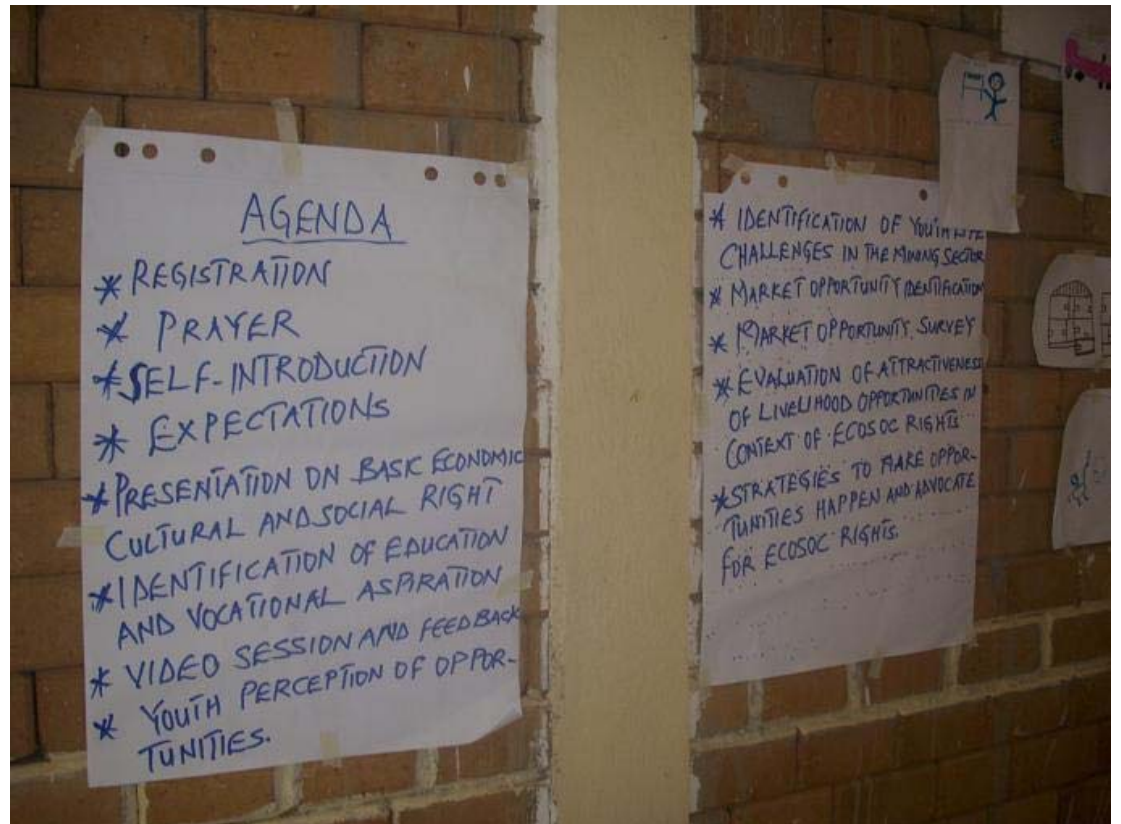 AGENDA
* REGISTRATION
* PRAYER
* SELF-INTRODUCTION
* EXPECTATIONS
* PRESENTATION ON BASIC ECONOMIC
CULTURAL AND SOCIAL RIGHT
* IDENTIFICATION OF EDUCATION
AND VOCATIONAL ASPIRATION
* VIDEO SESSION AND FEEDBACK
* YOUTH PERCEPTION OF OPPOR-
TUNITIES.
* IDENTIFICATION OF YOUTH
CHALLENGES IN THE MINING SECTOR
* MARKET OPPORTUNITY IDENTIFICATION
* MARKET OPPORTUNITY SURVEY
* EVALUATION OF ATTRACTIVENESS
OF LIVELIHOOD OPPORTUNITIES IN
CONTEXT OF ECOSOC RIGHTS
* STRATEGIES TO MAKE OPPOR-
TUNITIES HAPPEN AND ADVOCATE
FOR ECOSOC RIGHTS.